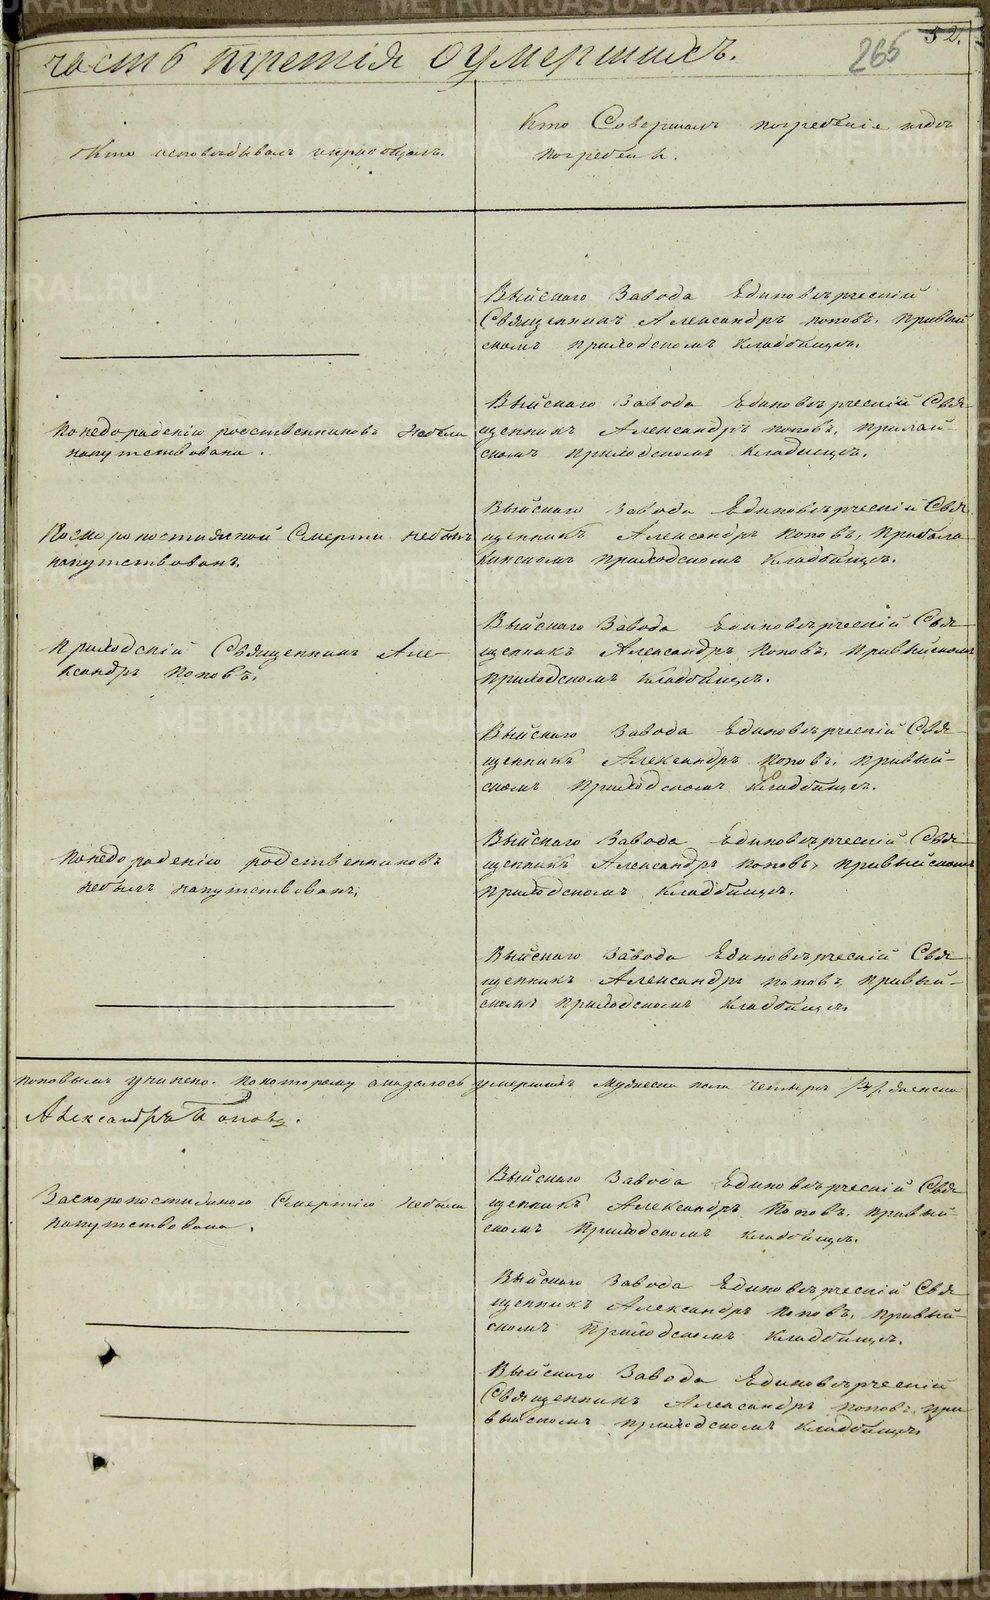 часть третія оумершихъ.
265
52.
Кто исповѣдывалъ и пріобщалъ.
Кто Совершалъ погребеніе и гдѣ
погребены.
Выйскаго Завода Единовѣрческій
Священникъ Александръ Поповъ. При Вый
скомъ приходскомъ Кладбищѣ.
По нерадѣнію родственниковъ Небыла
напутствована.
Выйскаго Завода Единовѣрческій Свя
щенникъ Александръ Поповъ, при
скомъ приходскомъ Кладбищѣ.
По скоропостижной Смерти небылъ
напутствованъ.
Выйскаго Завода Единовѣрческій Свя
щенникъ Александръ Поповъ,
кинскомъ приходскомъ Кладбищѣ.
Приходскій Священникъ Але-
ксандръ Поповъ.
Выйскаго Завода Единовѣрческій Свя
щенникъ Александръ Поповъ, при Выйскомъ
приходскомъ Кладбищѣ.
Выйскаго Завода Единовѣрческій Свя
щенникъ Александръ Поповъ, при Вый-
скомъ приходскомъ Кладбищѣ.
По нерадѣнію родственниковъ
небылъ напутствованъ,
Выйскаго Завода Единовѣрческій Свя
щенникъ Александръ Поповъ, при Выйскомъ
приходскомъ Кладбищѣ.
Выйскаго Завода Единовѣрческій Свя
щенникъ Александръ Поповъ, при Вый-
скомъ приходскомъ Кладбищѣ
Поповымъ учинено. По которому оказалось умершихъ мужеска пола четыре /4/. женска
Александръ Поповъ.
За скоропостижною Смертію небыла
напутствована.
Выйскаго Завода Единовѣрческій Свя
щенникъ Александръ Поповъ. при Вый-
скомъ Приходскомъ Кладбищѣ.
Выйскаго Завода Единовѣрческій Свя
щенникъ Александръ Поповъ, при Вый-
скомъ Приходскомъ Кладбищѣ.
Выйскаго Завода Единовѣрческій
Священникъ Александръ Поповъ. при
выйскомъ приходскомъ Кладбищѣ
METRIKI.GASO-URAL.RU